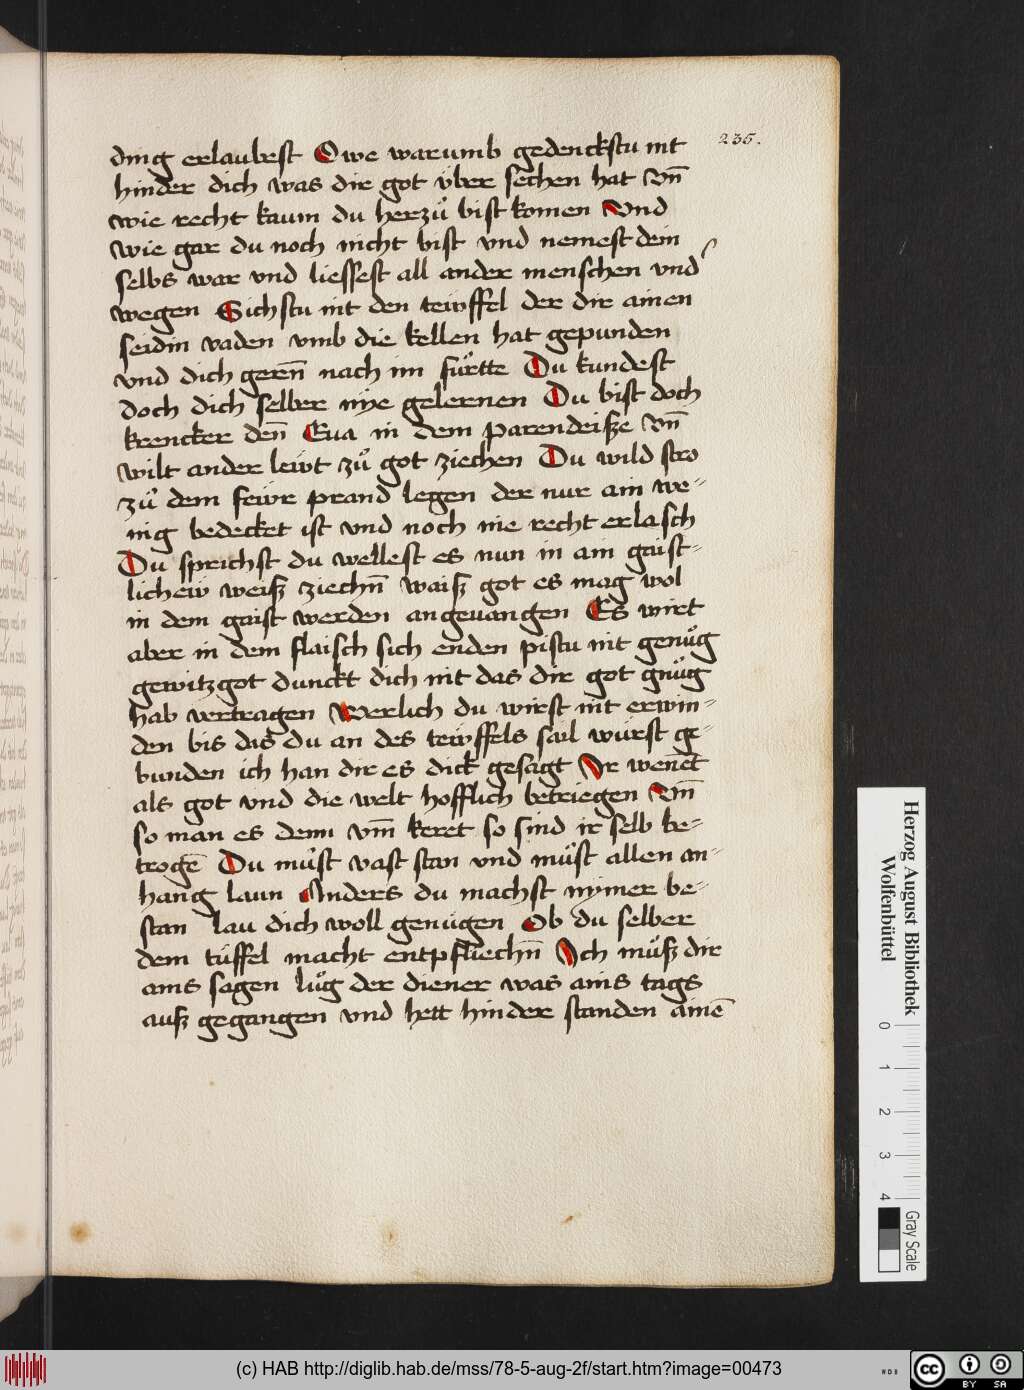 235.
ding erlaubest Owe warumb gedenckstu nit
hinder dich was dir got vber sechen hat vn̄
wie recht kaum du herzů bist komen Vnd
wie gar du noch nicht bist vnd nemest dein
selbs war vnd liessest all ander menschen vnd
wegen Sichstu nit den teiwffel der dir ainen
seidin vaden vmb die kellen hat gepunden
vnd dich geren̄ nach im fůrtte Du kundest
doch dich selber nye gelernen Du bist doch
krencker den̄ Eua in dem parendeisze vn̄
wilt ander leiwt zů got ziechen Du wild stro
zů dem feiwr prand legen der nur ain we-
nig bedecket ist vnd noch nie recht erlasch
Du sprichst du wellest es nun in ain gaist-
licheiv weisz ziechn̄ waisz got es mag wol
in dem gaist werden angeuangen Es wirt
aber in dem flaisch sich enden pistu nit genůg
gewitzgot dunckt dich nit das dir got gnůg
hab vertragen Werlich du wirst nit erwin-
den bis das du an des teiwffels sail würst ge-
bunden ich han dir es dick gesagt Ir wenēt
als got vnd die welt hofflich betriegen Vn̄
so man es denn vm̄ keret so sind ir selb be-
trogē Du můst vast stan vnd můst allen an-
hang laun Anders du machst nymer be-
stan lau dich woll genügen Ob du selber
dem tüffel macht entpfliechn̄ Ich můsz dir
ains sagen lůg der diener was ains tags
ausz gegangen vnd hett hinder standen ainē
Herzog August Bibliothek
Wolfenbüttel
0 1 2 3 4
Gray Scale
(c) HAB http://diglib.hab.de/mss/78-5-aug-2f/start.htm?image=00473
cc BY SA